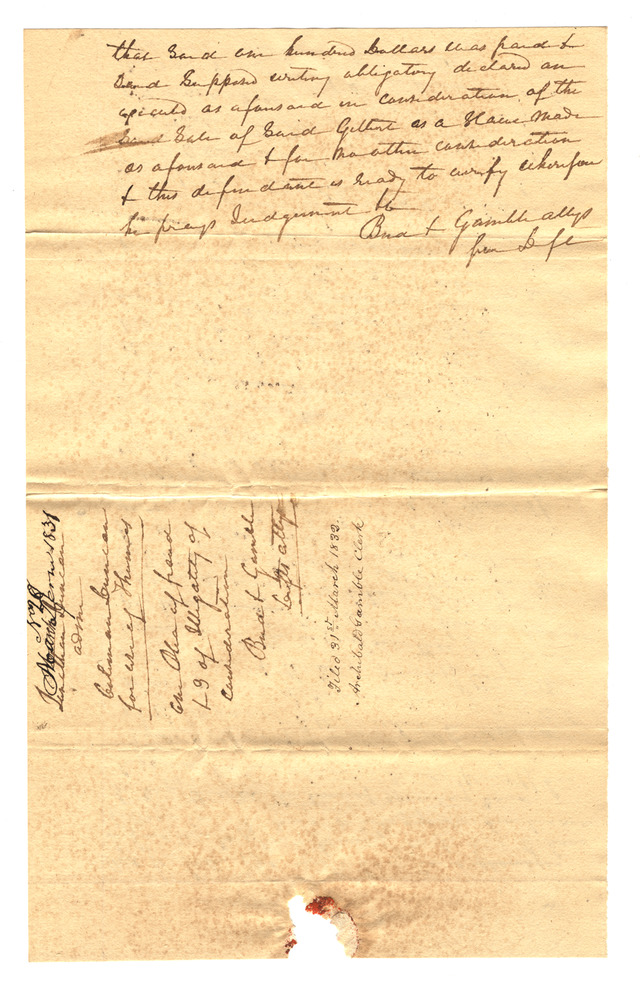 that said one hundred Dollars was paid &
Said Supposed writing obligatory declared on
executed as aforesaid in consideration of the
Sale of Said Gilbert as a Slave made
as aforesaid & for no other consideration
& this defendant is ready to verify wherefore
he prays Judgement &c
Bird & Gamble attys
for Deft
No 78
March Term 1831
Duncan
adm
Coleman Duncan
for use of Thomas
Plea of fraud
& 3 of Illegality of
Consideration
Bird & Gamble
Defts attys
Filed 31st March 1832.
Archibald Gamble Clerk